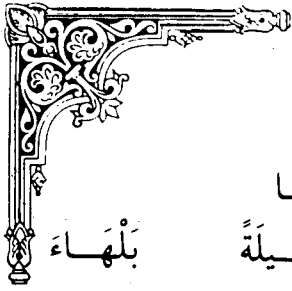 ـا
ـيلَةً بَلْهَـاءَ